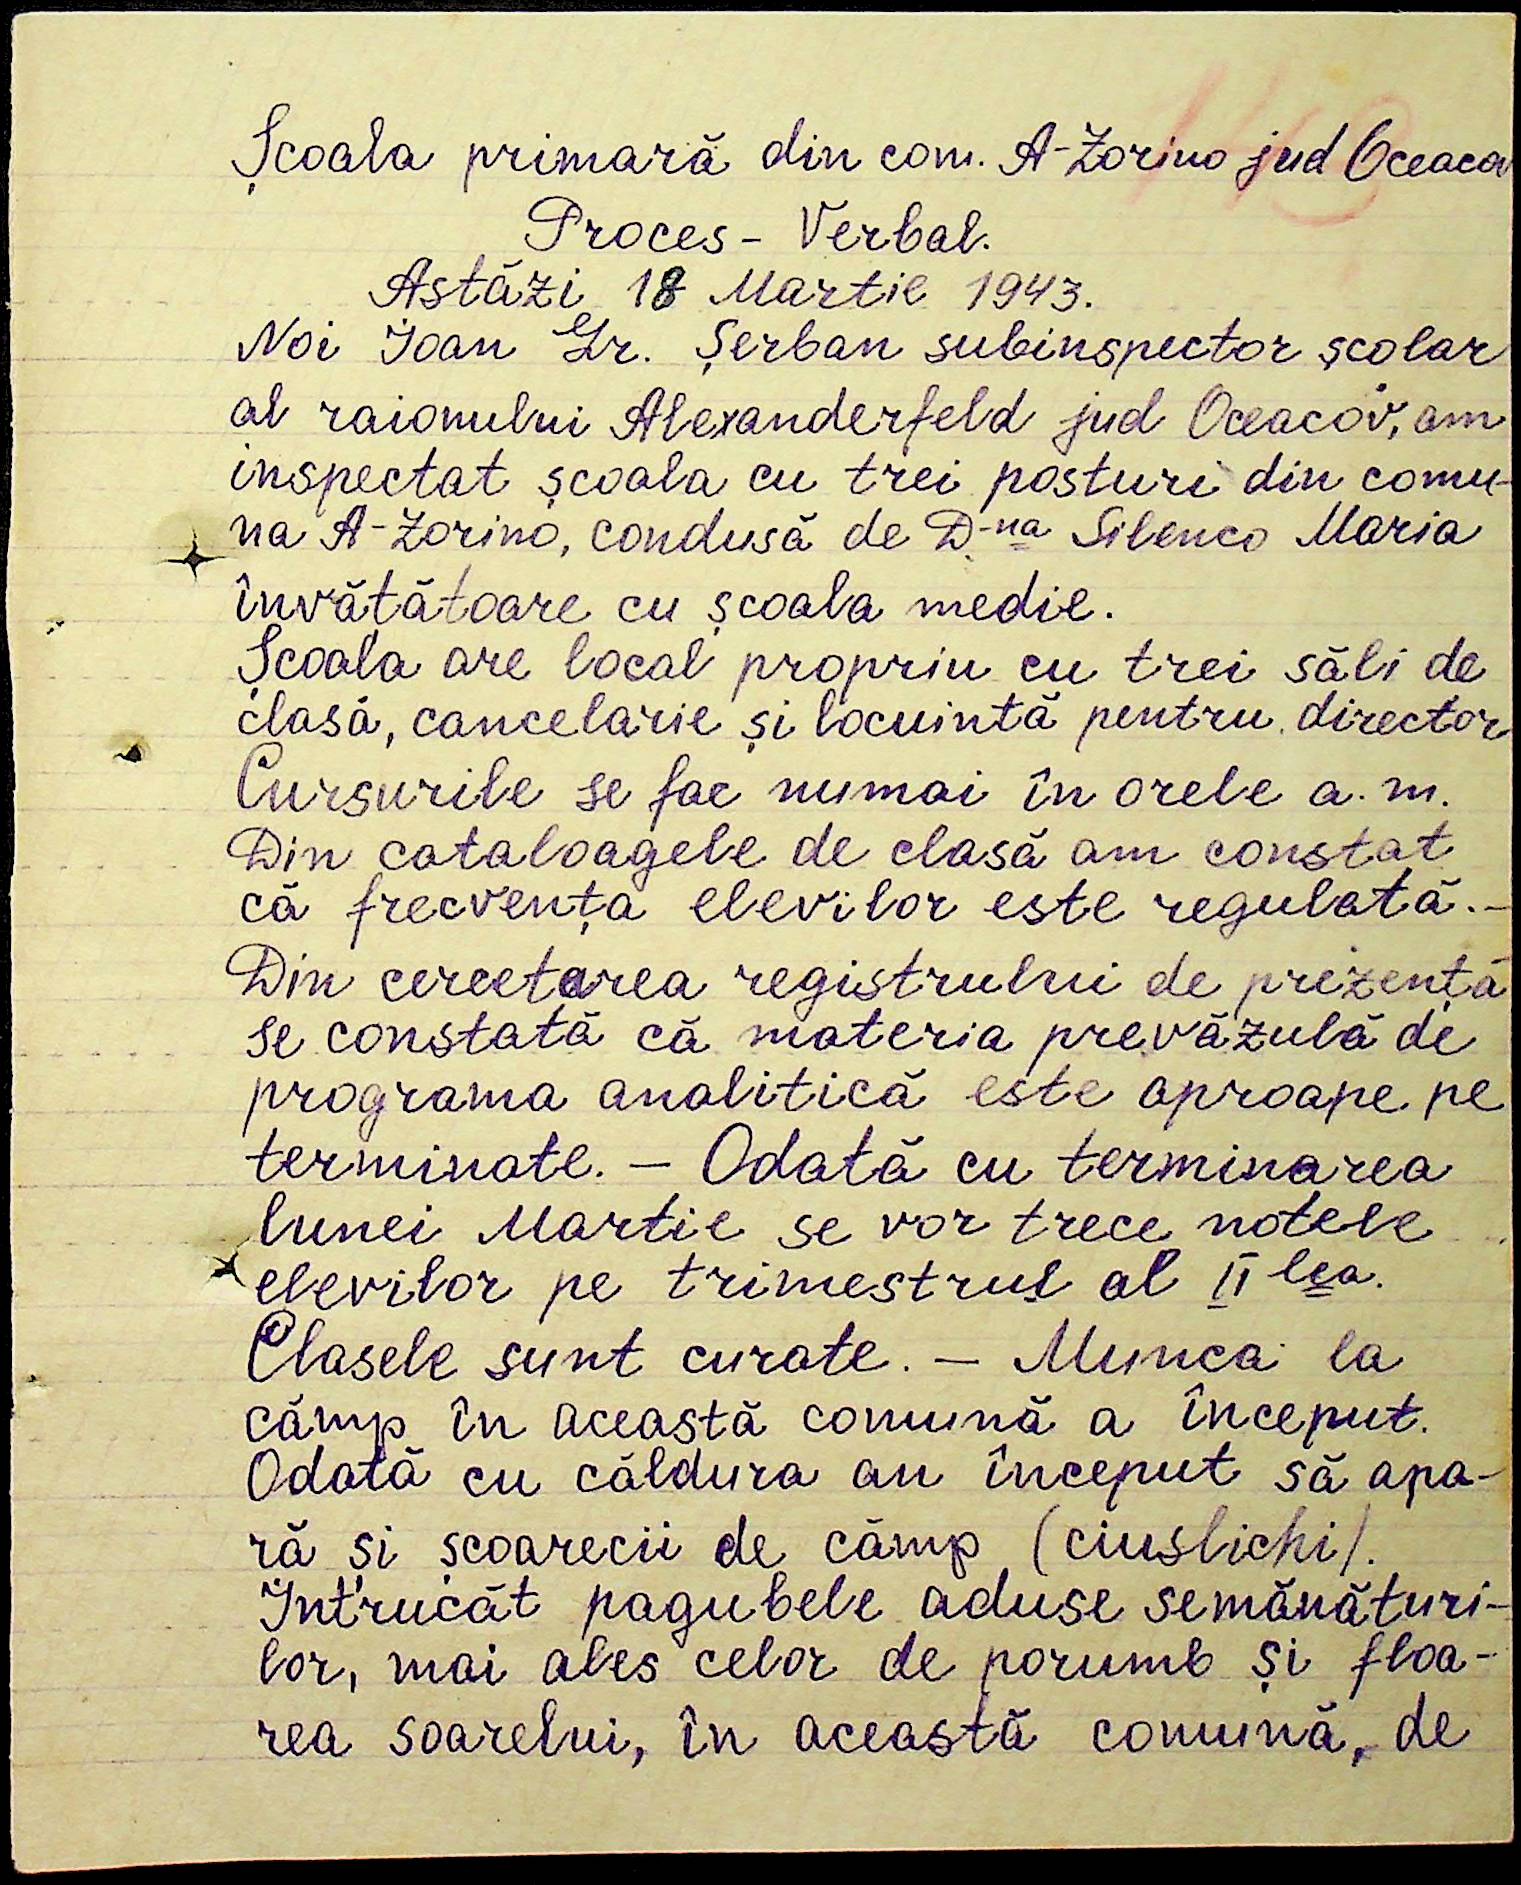 Școala primară din com. A-Zorino jud Oceacov
Proces - Verbal.
Astăzi 18 Martie 1943.
Noi Ioan Gr. Șerban subinspector școlar
al raionului Alexanderfeld jud Oceacov, am
inspectat școala cu trei posturi din comu-
na A-Zorino, condusă de D-na Silenco Maria
învătătoare cu școala medie.
Școala are local propriu cu trei săli de
clasă, cancelarie și locuintă pentru director
Cursurile se fac numai în orele a.m.
Din cataloagele de clasă am constat
că frecvența elevilor este regulată.-
Din cercetarea registrului de prizență
se constată că materia prevăzulă de
programa analitică este aproape pe
terminate. - Odată cu terminarea
lunei Martie se vor trece notele
elevilor pe trimestrul al II lea.
Clasele sunt curate. - Munca la
cămp în această comună a început.
Odată cu căldura au început să apa-
ră și școarecii de cămp (ciuslichi).
Intrucăt pagubele aduse semănături-
lor, mai ales celor de porumb și floa-
rea soarelui, în această comună, de